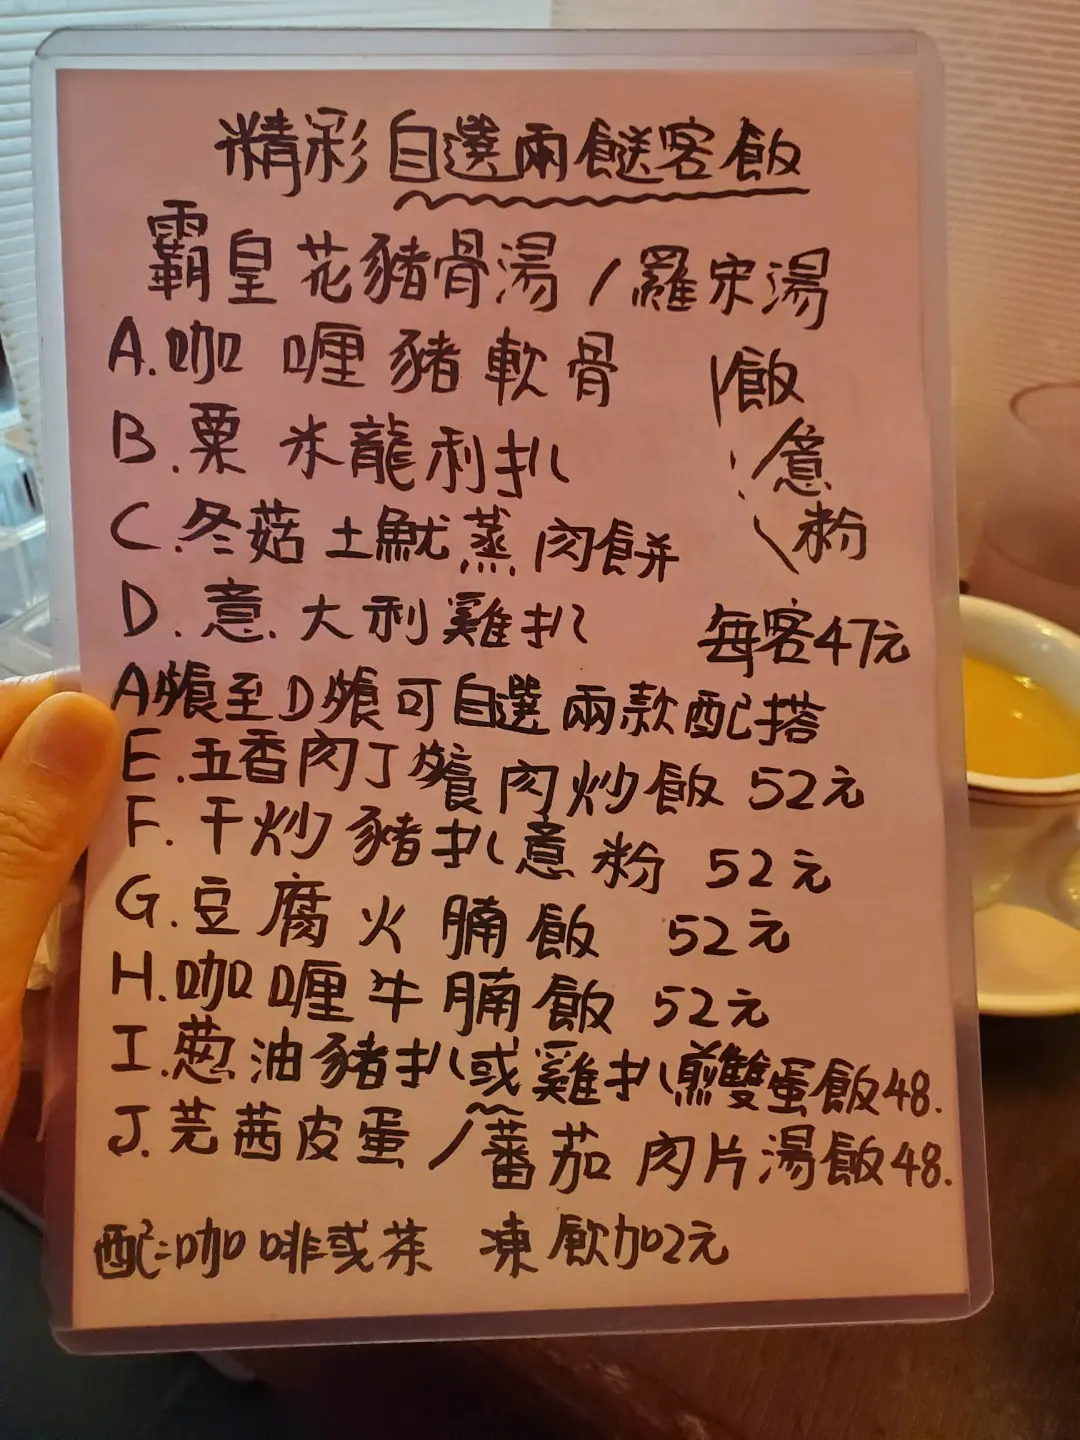 精彩自選兩餸客飯
霸皇花豬骨湯/羅宋湯
A.咖喱豬軟骨 飯
B.粟米龍利扒 意
C.冬菇土魷蒸肉餅 粉
D.意大利雞扒 每客47元
A餐至D餐可自選兩款配搭
E.五香肉丁餐肉炒飯 52元
F.干炒豬扒意粉 52元
G.豆腐火腩飯 52元
H.咖喱牛腩飯 52元
I.葱油豬扒或雞扒煎雙蛋飯48.
J.芫茜皮蛋/蕃茄肉片湯飯48.
配:咖啡或茶 凍飲加2元